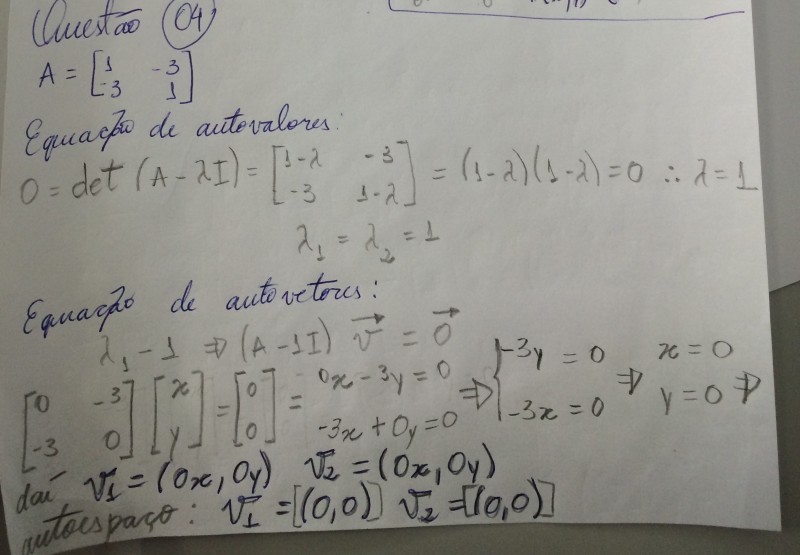 Questão 04
A = [1 -3
-3 1]
Equação de autovalores:
0 = det (A - λI) = [1-λ -3
-3 1-λ] = (1-λ)(1-λ) = 0 ∴ λ = 1
λ₁ = λ₂ = 1
Equação de autovetores:
λ₁ - 1 ⇒ (A - 1I) v⃗ = 0⃗
[0 -3
-3 0] [x
y] = [0
0] = 0x - 3y = 0
-3x + 0y = 0 ⇒ { -3y = 0
-3x = 0 ⇒ x = 0
y = 0 ⇒
daí v₁ = (0x, 0y) v₂ = (0x, 0y)
autoespaço: v₁ = [(0,0)] v₂ = [(0,0)]